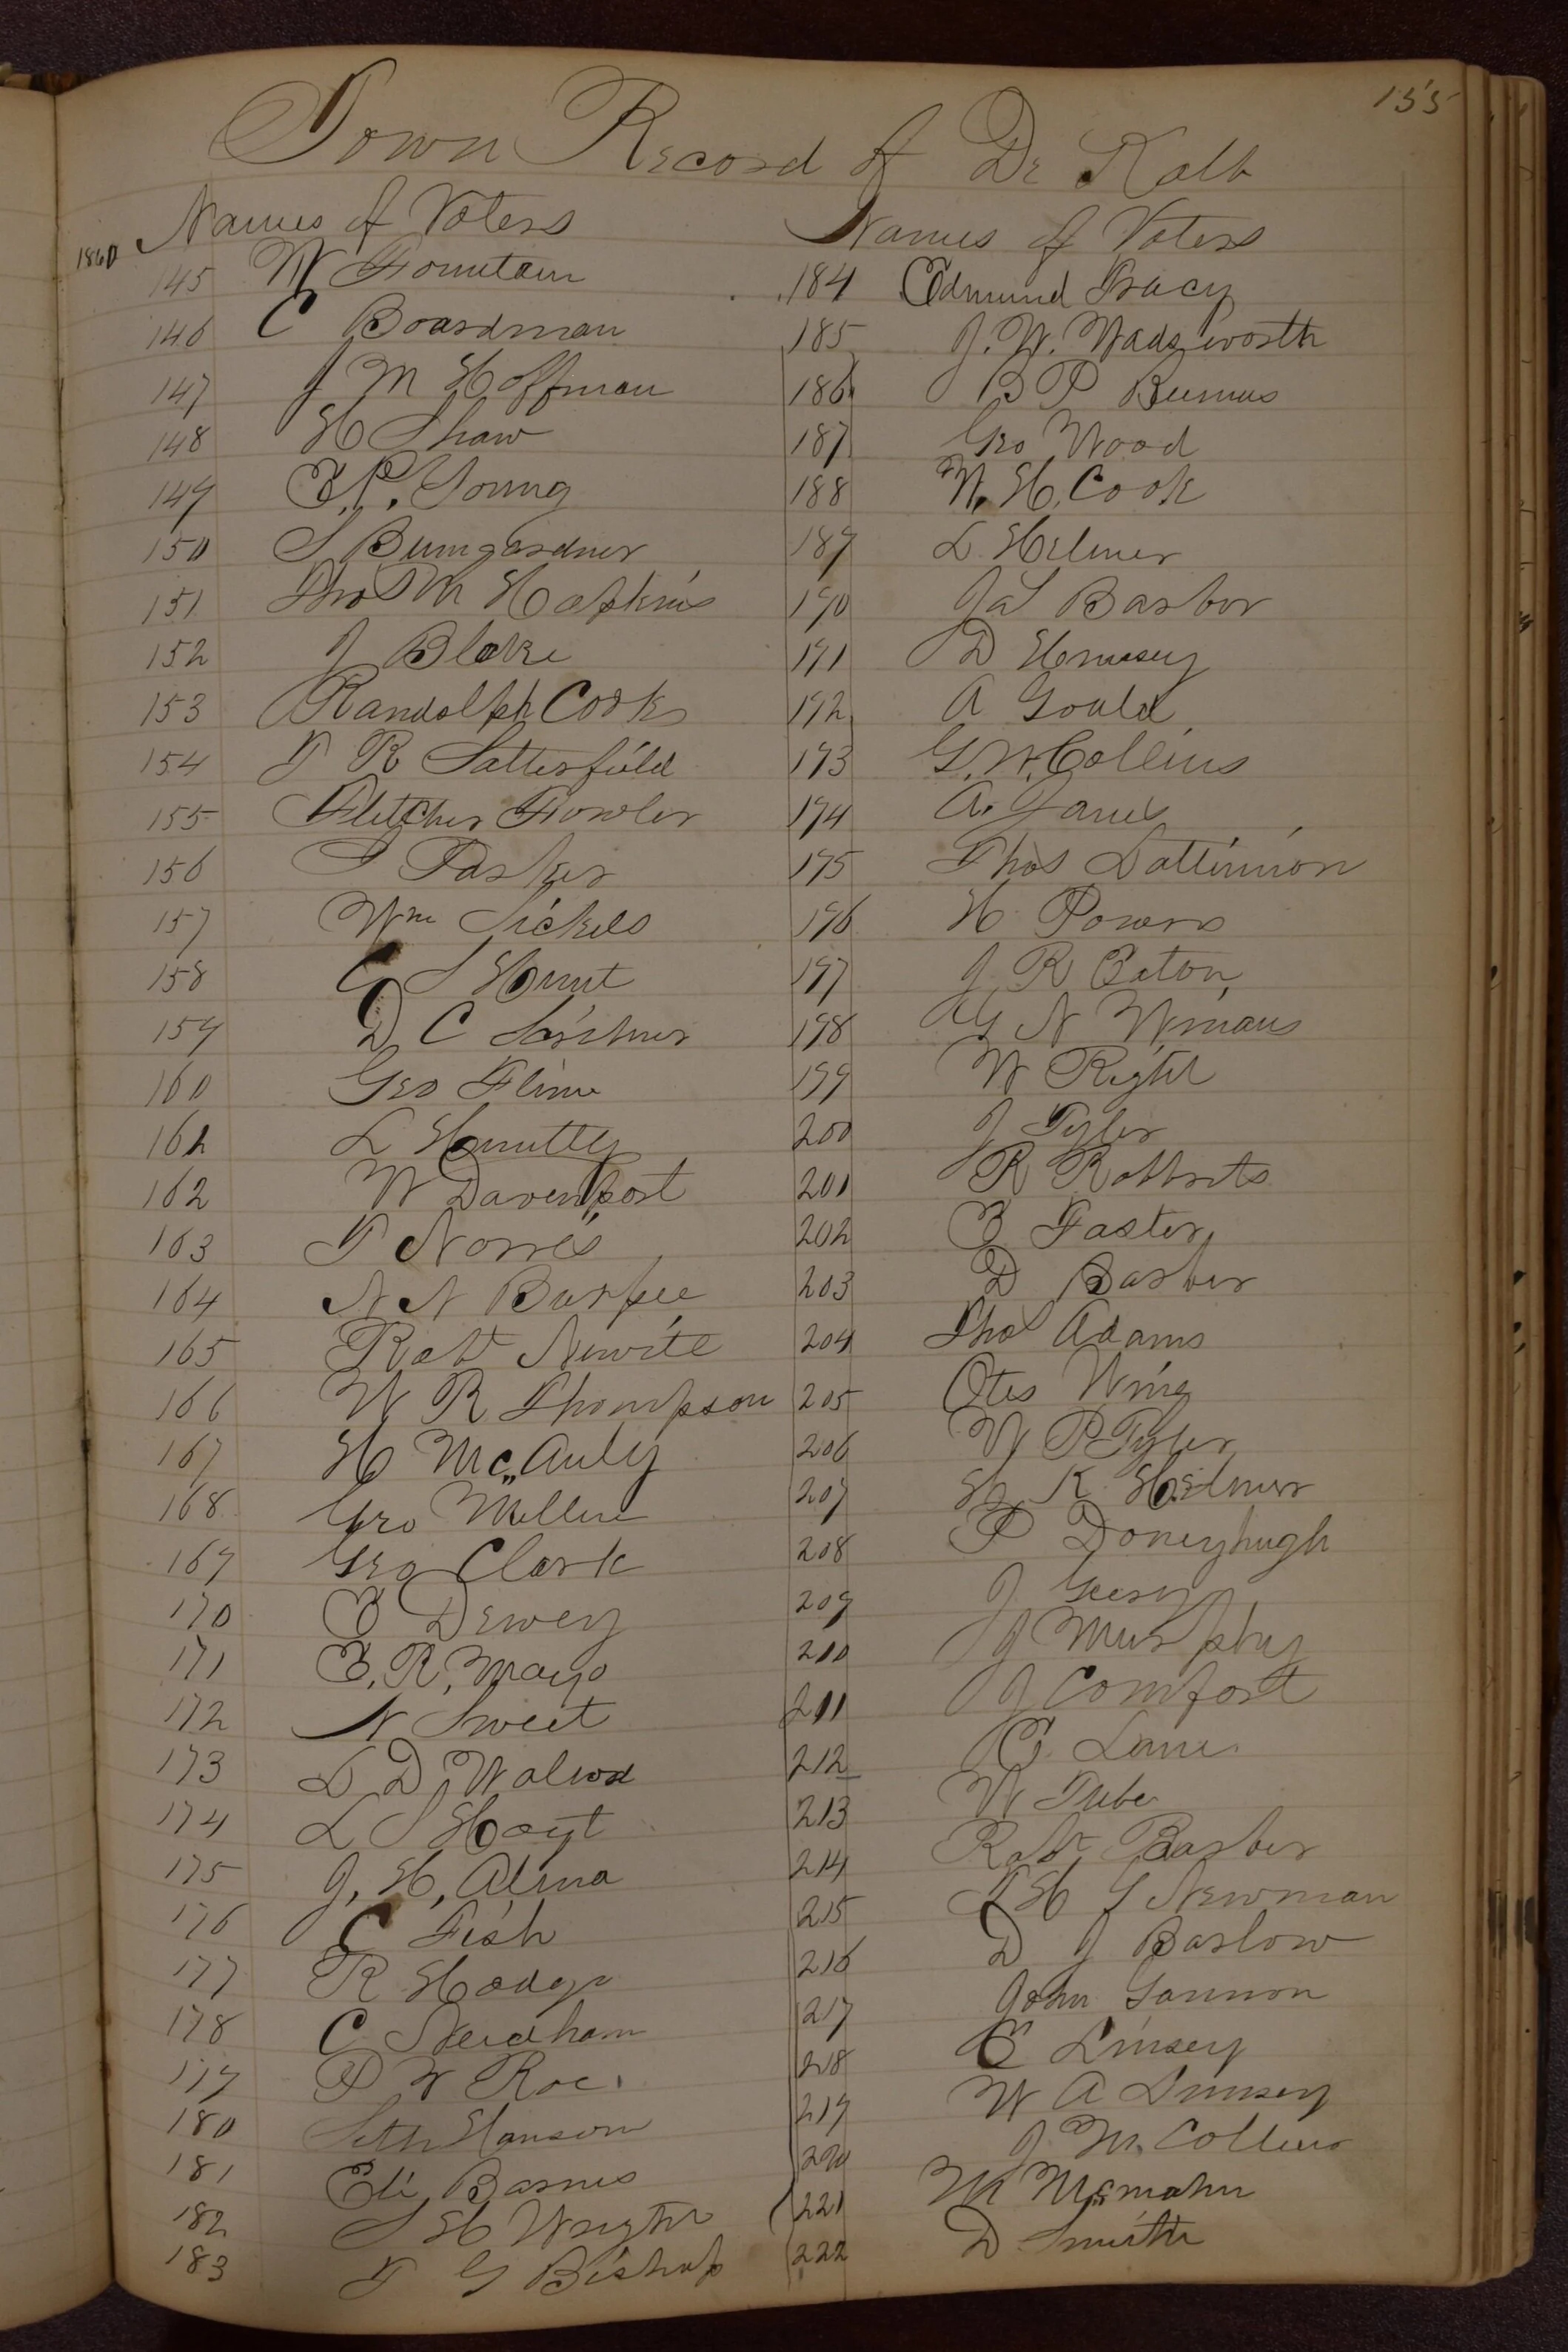 155
Town Record of De Kalb
Names of Voters
1860
145 W Fountain
146 C Boardman
147 J M Hoffman
148 H Shaw
149 E. P. Young
150 S Bumgardner
151 Thos M Hopkins
152 J Blake
153 Randolph Cook
154 F R Satterfield
155 Fletcher Fowler
156 T Parker
157 Wm Sickels
158 C S Hunt
159 D C
160 Geo Flinn
161 L
162 W Davenport
163 F Norris
164 N N Burpee
165 Robt
166 W R Thompson
167 H Mc Auly
168 Geo
169 Geo Clark
170 E Dewey
171 E. R. Mayo
172 N Sweet
173 L D
174 L S Hoyt
175 J. H.
176 C Fish
177 R Hodge
178 C Needham
179 P W Roe
180 Seth Hanson
181 Eli Barnes
182 S H Wright
183 F G Bishop
Names of Voters
184 Edmund Tracy
185 J. W. Wadsworth
186 B P
187 Geo Wood
188 W. H. Cook
189 L. Helmer
190 Jas Barber
191 D
192 A Gould
193 G. W. Collins
194 A.
195 Thos
196 H Powers
197 J R Eaton
198 G N
199 W Right
200 J Tyler
201 R Robberts
202 E Faster
203 D Barber
204 Thos Adams
205 Otes Wing
206 W P Tyler
207 H K Helmer
208 P Doneyhugh
209 J
210 J Murphy
211 J Comfort
212 C Lane
213 W
214 Robt Barber
215 H Newman
216 D J Barlow
217 John Gannon
218 E Linsey
219 W A Linsey
220 J M. Collins
221 Mc mahn
222 D Smith